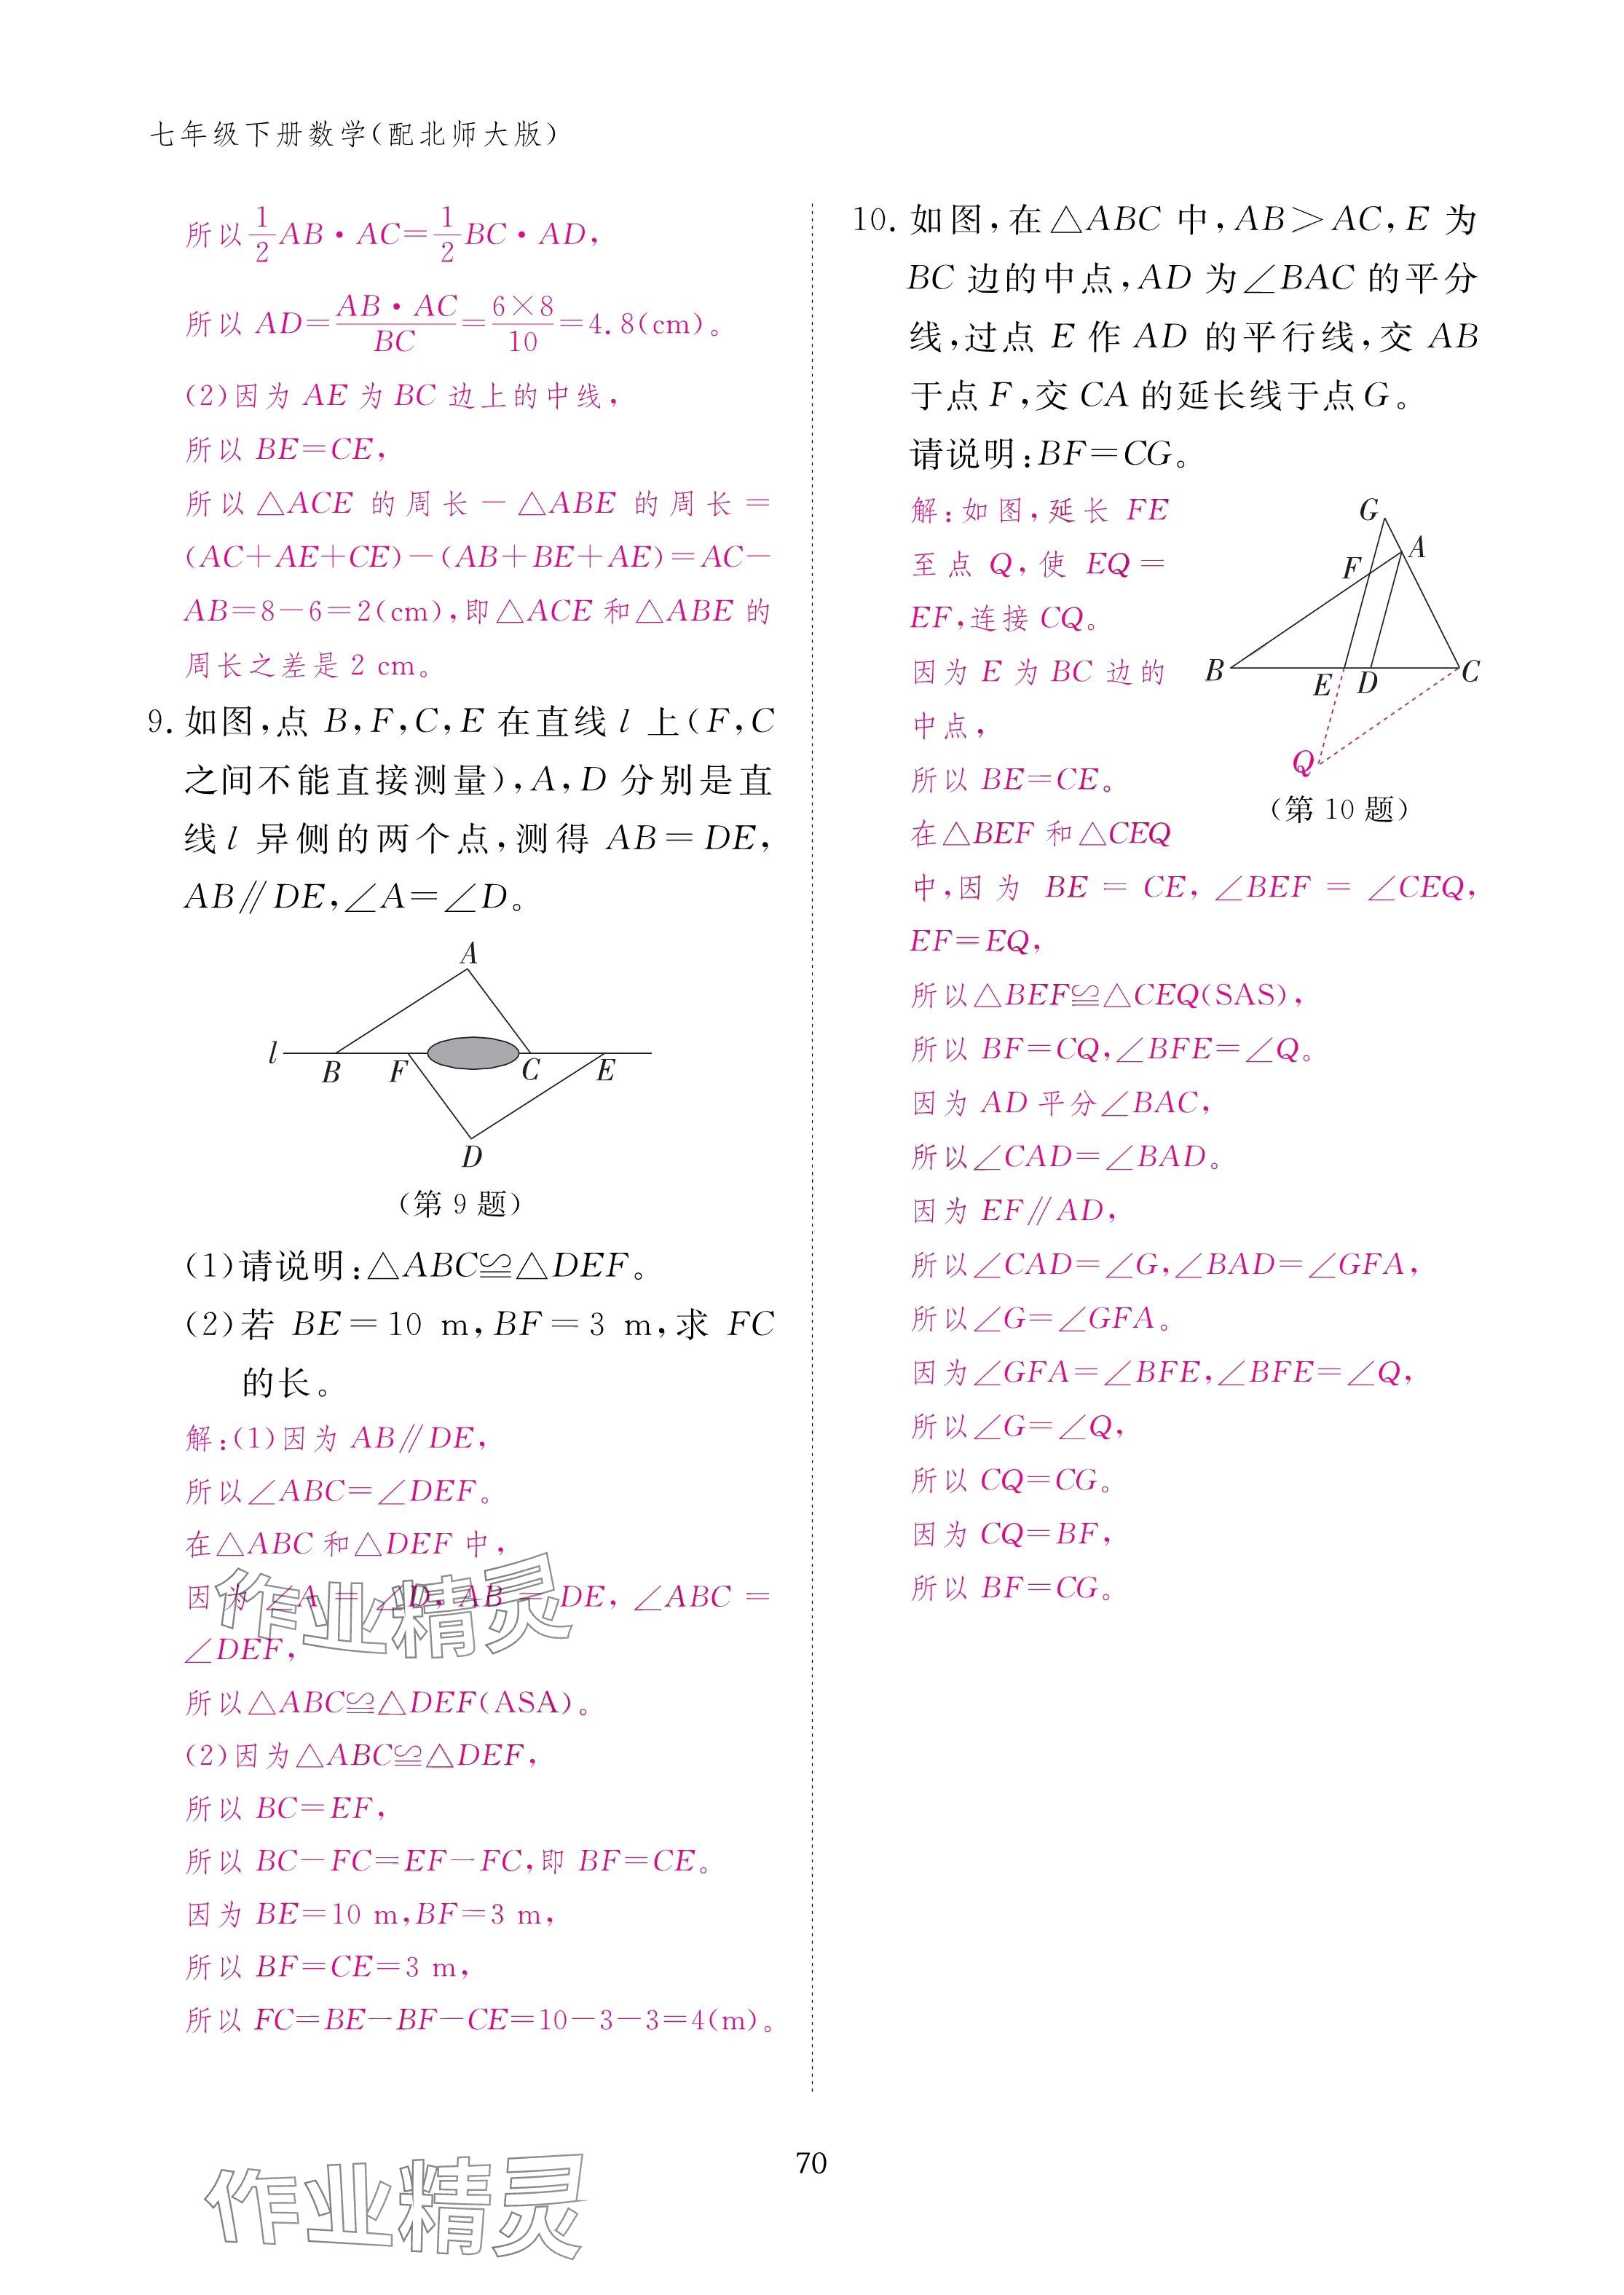 七年级下册数学(配北师大版)
所以1/2AB·AC=1/2BC·AD,
所以 AD=AB·AC/BC=6×8/10=4.8(cm)。
(2)因为 AE 为 BC 边上的中线,
所以 BE=CE,
所以 △ACE 的周长-△ABE 的周长=
(AC+AE+CE)-(AB+BE+AE)=AC-
AB=8-6=2(cm),即△ACE 和△ABE 的
周长之差是 2 cm。
9. 如图,点 B,F,C,E 在直线 l 上(F,C
之间不能直接测量),A,D 分别是直
线 l 异侧的两个点,测得 AB=DE,
AB∥DE,∠A=∠D。
A
l
B
F
C
E
D
(第 9 题)
(1)请说明:△ABC≌△DEF。
(2)若 BE=10 m,BF=3 m,求 FC
的长。
解:(1)因为 AB∥DE,
所以∠ABC=∠DEF。
在△ABC 和△DEF 中,
因为 ∠A=∠D, AB=DE, ∠ABC=
∠DEF,
所以△ABC≌△DEF(ASA)。
(2)因为△ABC≌△DEF,
所以 BC=EF,
所以 BC-FC=EF-FC,即 BF=CE。
因为 BE=10 m,BF=3 m,
所以 BF=CE=3 m,
所以 FC=BE-BF-CE=10-3-3=4(m)。
10. 如图,在△ABC 中,AB>AC,E 为
BC 边的中点,AD 为∠BAC 的平分
线,过点 E 作 AD 的平行线,交 AB
于点 F,交 CA 的延长线于点 G。
请说明:BF=CG。
解:如图,延长 FE
至点 Q,使 EQ=
EF,连接 CQ。
因为 E 为 BC 边的
中点,
所以 BE=CE。
在△BEF 和△CEQ
G
A
F
B
E
D
C
Q
(第 10 题)
中,因为 BE=CE,∠BEF=∠CEQ,
EF=EQ,
所以△BEF≌△CEQ(SAS),
所以 BF=CQ,∠BFE=∠Q。
因为 AD 平分∠BAC,
所以∠CAD=∠BAD。
因为 EF∥AD,
所以∠CAD=∠G,∠BAD=∠GFA,
所以∠G=∠GFA。
因为∠GFA=∠BFE,∠BFE=∠Q,
所以∠G=∠Q,
所以 CQ=CG。
因为 CQ=BF,
所以 BF=CG。
作业精灵
70
作业精灵